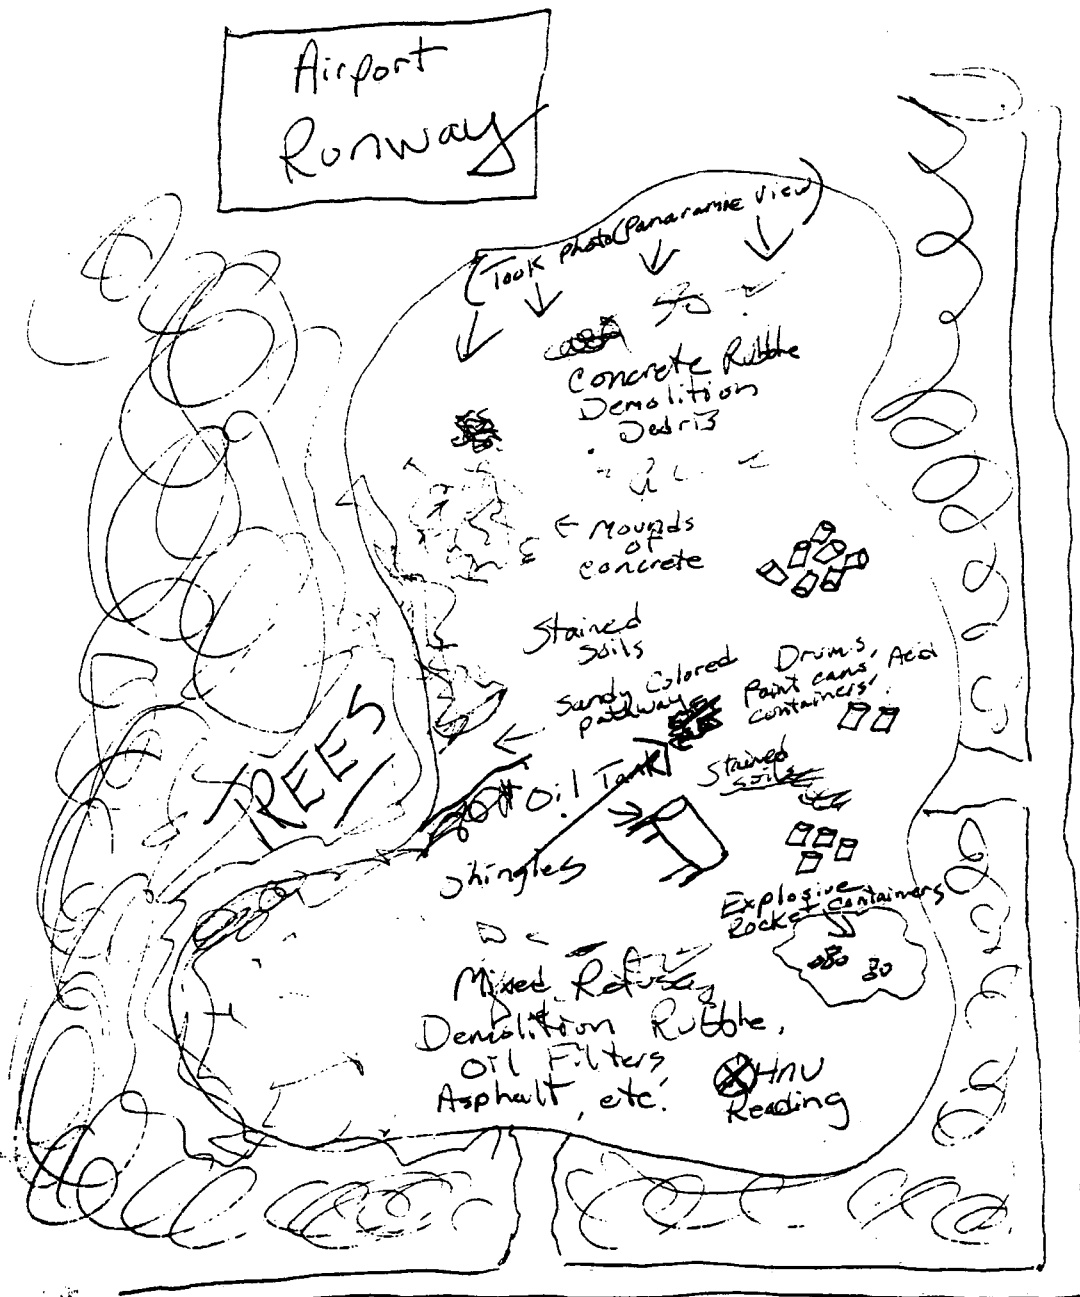 Airport
Runway
(Took Photo (Panaramic View)
Concrete Rubble
Demolition
Debris
← Mounds
of
concrete
Stained
Soils
Sandy Colored
pathway
Drums, Acid
Paint cans,
containers,
Stained
Soils
Oil Tank
Shingles
TREES
Explosive
Rocket Containers
Mixed Refuse,
Demolition Rubble,
Oil Filters
Asphalt, etc.
HNU
Reading